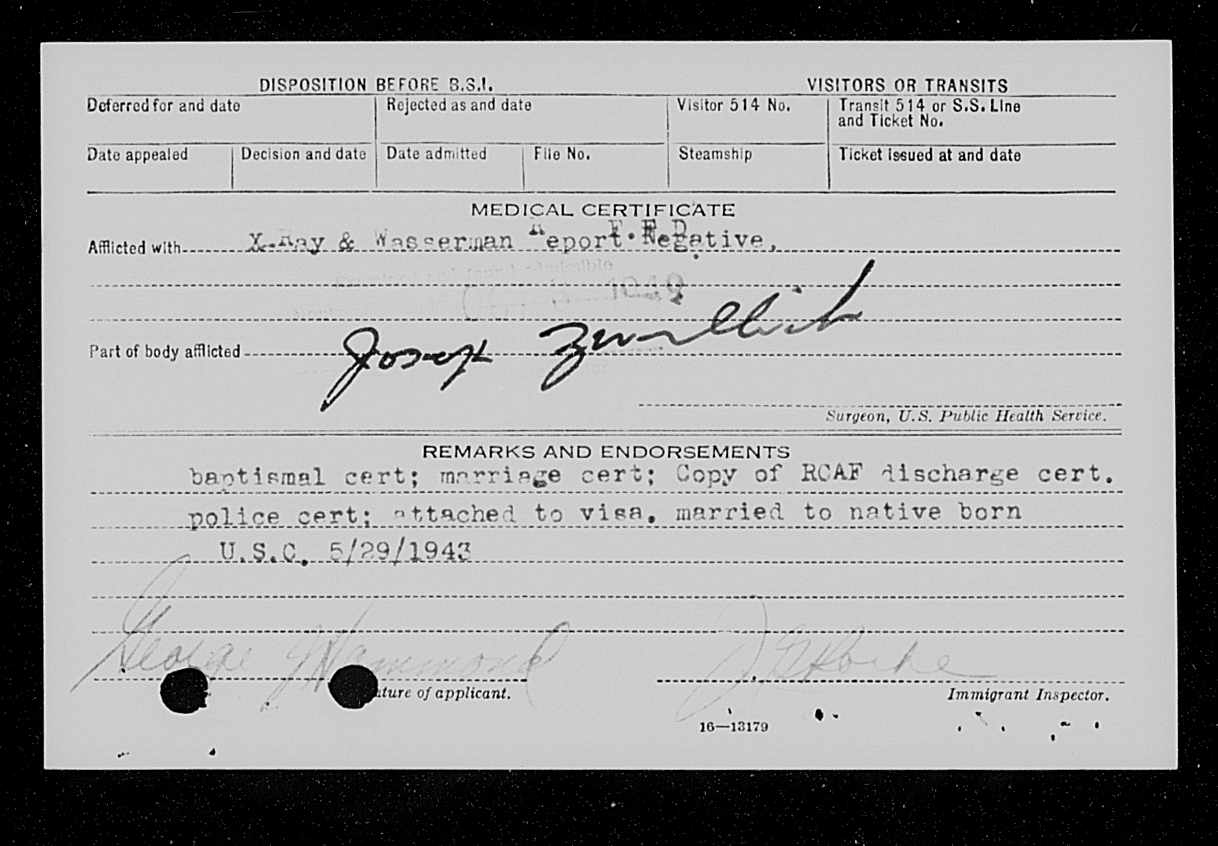 DISPOSITION BEFORE B.S.I. VISITORS OR TRANSITS
Deferred for and date Rejected as and date Visitor 514 No. Transit 514 or S.S. Line
and Ticket No.
Date appealed Decision and date Date admitted File No. Steamship Ticket issued at and date
MEDICAL CERTIFICATE
Afflicted with X-Ray & Wasserman Report Negative.
Part of body afflicted Joseph
Surgeon, U.S. Public Health Service.
REMARKS AND ENDORSEMENTS
baptismal cert; marriage cert; Copy of RCAF discharge cert.
police cert; attached to visa. married to native born
U.S.C. 5/29/1943
George J Hammond
ature of applicant.
Immigrant Inspector.
16—13179